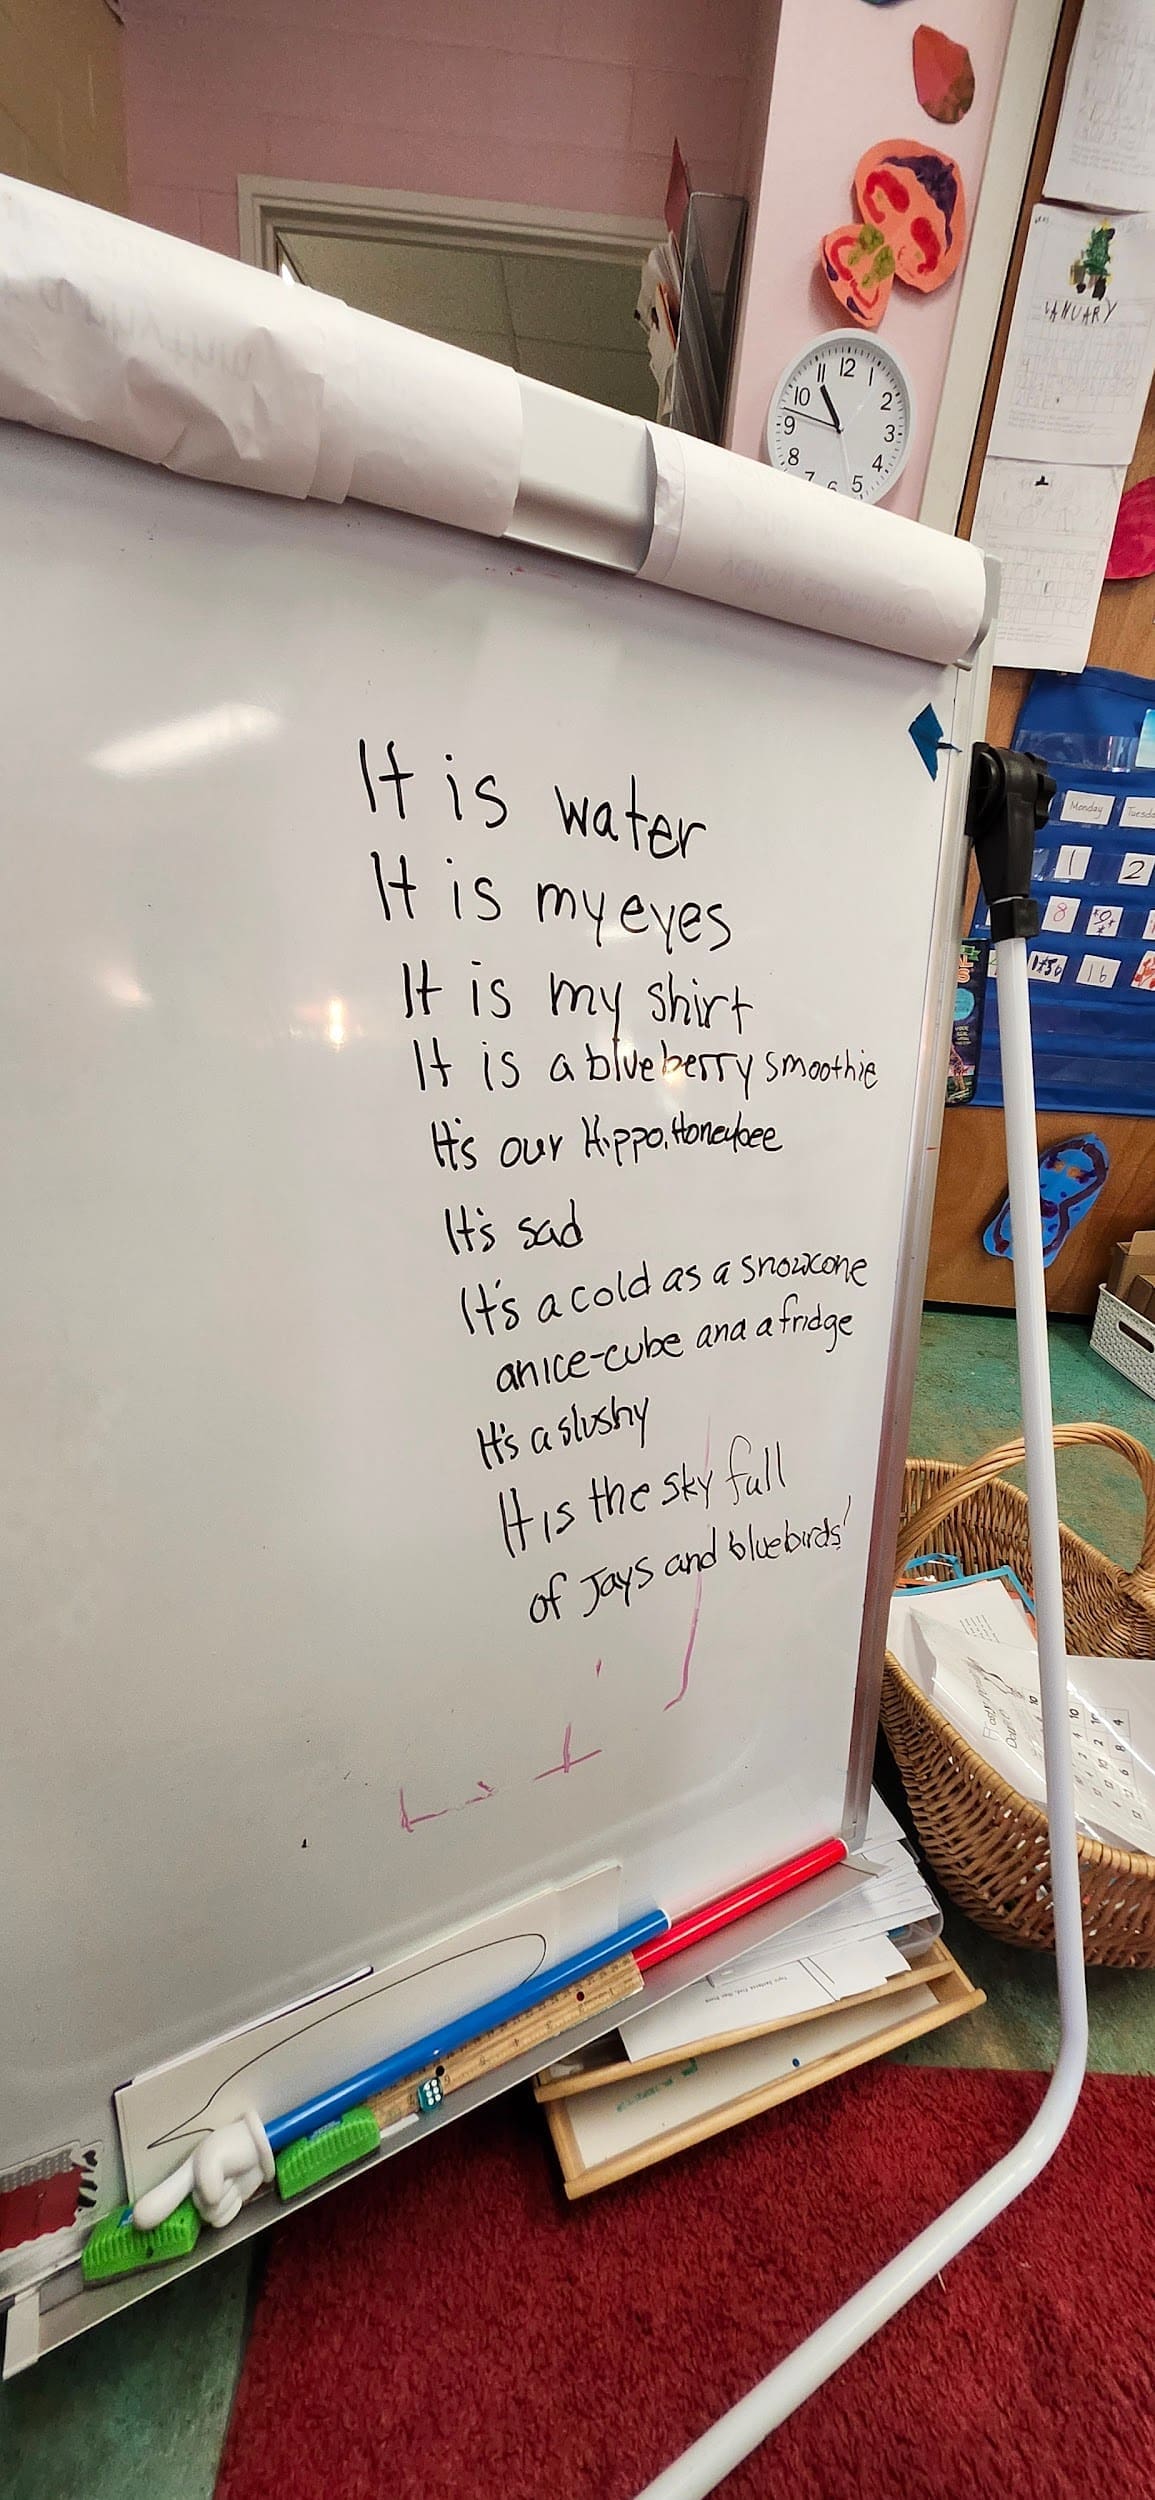 It is water
It is my eyes
It is my shirt
It is a blueberry smoothie
It's our Hippo, Honeybee
It's sad
It's a cold as a snowcone
an ice-cube and a fridge
It's a slushy
It is the sky full
of Jays and bluebirds!
11 12 1
10 2
9 3
8 4
7 6 5
JANUARY
Monday Tuesda
1 2
8
16